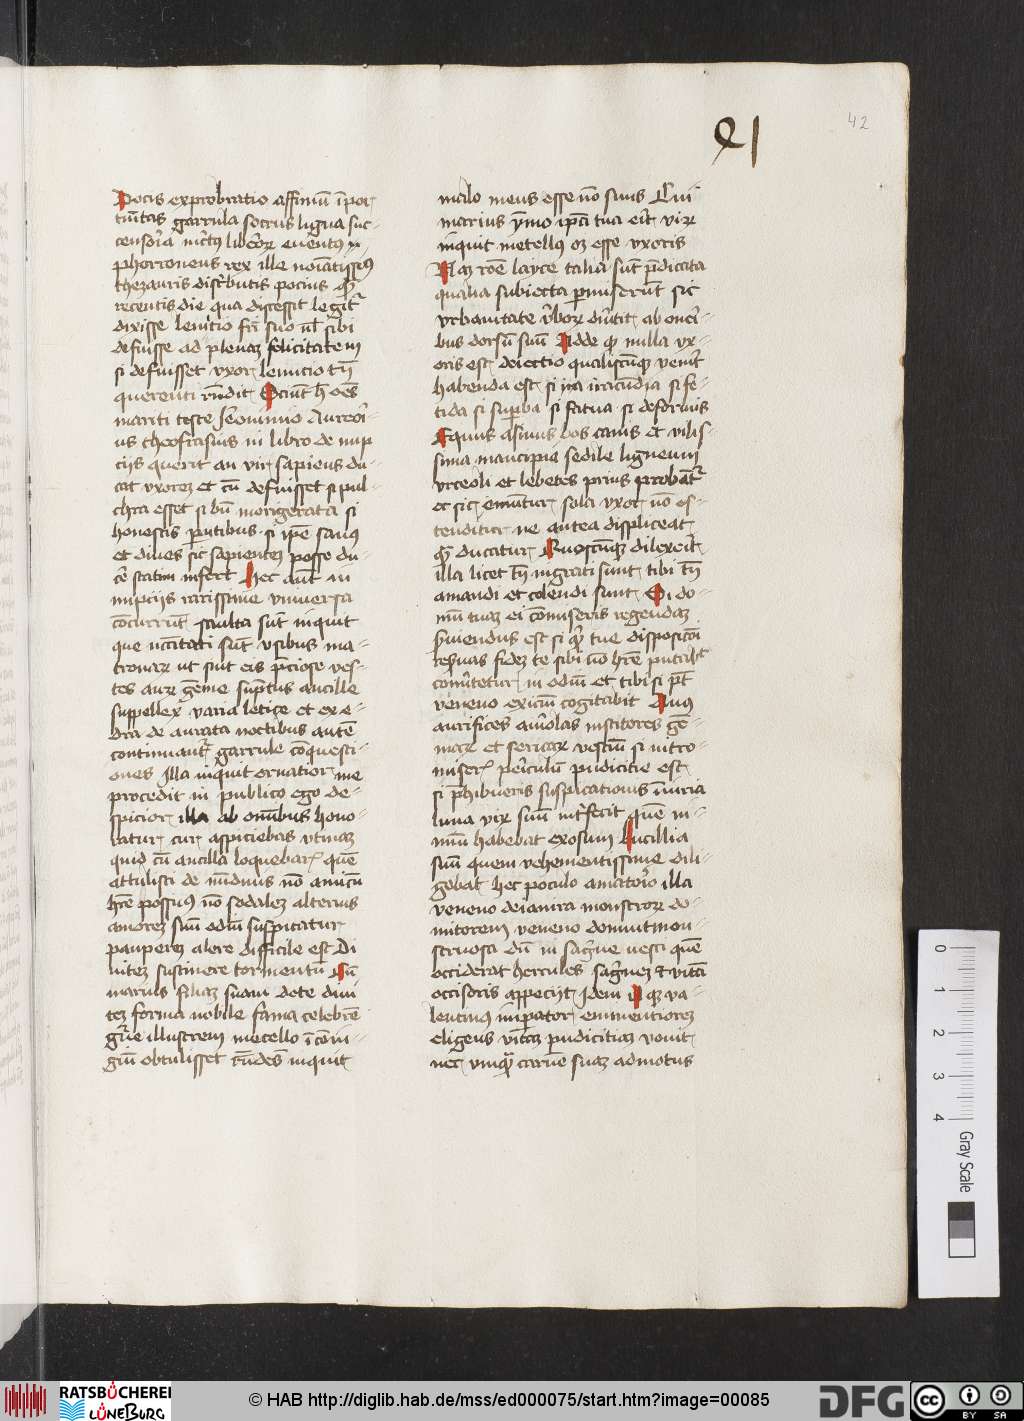 42
Docis exprobratio affiniū īpor
tunitas garrula socrus ligua suc
censoria incertus liberorum euentus
phorroneus rex ille
thezauris distributis pocius
recentis die qua discessit legitur
dixisse leuitio fri suo nl sibi
defuisse ad plenaz felicitatem
si defuisset vxor leuitio tn
querenti rndit Sciunt h oēs
mariti teste Jeronimo Aureoli
us theofrastus in libro de nup
ciis querit an vir sapiens du
cat vxorez et cū defuisset si pul
chra esset si bn morigerata si
honestis pntibus si ipē sanus
et diues sic sapientez posse du
cē statim infert Hec aut in
nupciis rarissime vniuersa
concurrunt Multa sūt inquit
que nccitati sūt vsibus ma
tronaz ut sint eis pciose ves
tes auz geme suptus ancille
suppellex varia letice et exe
dra de aurata noctibus autē
continuantur garrule conquesti
ones Illa inquit ornatior me
procedit in publico ego de
spicior illa ab omībus hono
ratur cur aspiciebas vtinaz
quid cū ancilla loquebar quē
attulisti de nudinis nō amicū
hrē possum nō sodalez alterius
amorez suū odiū suspicatur
pauperez alere difficile est Di
uitez sustinere tormentū Cū
marius filiaz suam dote diui
tez forma nobile fama celebrē
gne illustrem metello icōiu
giū obtulisset rndēs inquit
malo meus esse nō suus Cui
marius ymo ipa tua erit vir
inquit metellus oz esse vxoris
Naz roē layce talia sūt pdicata
qualia subiecta pmiserūt sic
vrbanitate vborz diutit ab oneri
bus dorsū suū Adde q nulla vx
oris est deiectio qualiscūq venit
habenda est si iracūdia si fe
tida si supba si fatua si deformis
Equus asinus bos canis et vilis
sima mancipia sedile ligneum
vrceoli et lebetes prius probantur
et sic emūtur sola vxor nō os
tenditur ne antea displiceat
q ducatur Quoscūqz dilexerit
illa licet tn ingrati sunt tibi tn
amandi et colendi sunt Si do
mū tuaz ei cōmiseris regendaz
seruiendus est si q tue disposicōi
reseruas fidez te sibi nō hrē putabit
cōuertetur in odiū et tibi si pt
veneno exiciū cogitabit Anus
aurifices ariolas institores gē
maz et sericaz vestiū si intro
miseris periculū pudicitie est
si phibueris suspicationis iniuria
luna vir suū interfecit quē ni
miū habebat exosum Lucillia
suū quem vehementissime dili
gebat hec poculo amatorio illa
veneno deianira monstrorz do
mitorem veneno domuit mon
struosa dū in saguie nesci quē
occiderat hercules saguez et vitā
occisoris appeciit Idem quz va
lentinus imperator eminentiorez
eligens vitaz pudicitiaz vouit
nec vnq carnē suaz admotus
0
1
2
3
4
Gray Scale
RATSBÜCHEREI
LÜNEBURG
© HAB http://diglib.hab.de/mss/ed000075/start.htm?image=00085
DFG
cc
BY SA